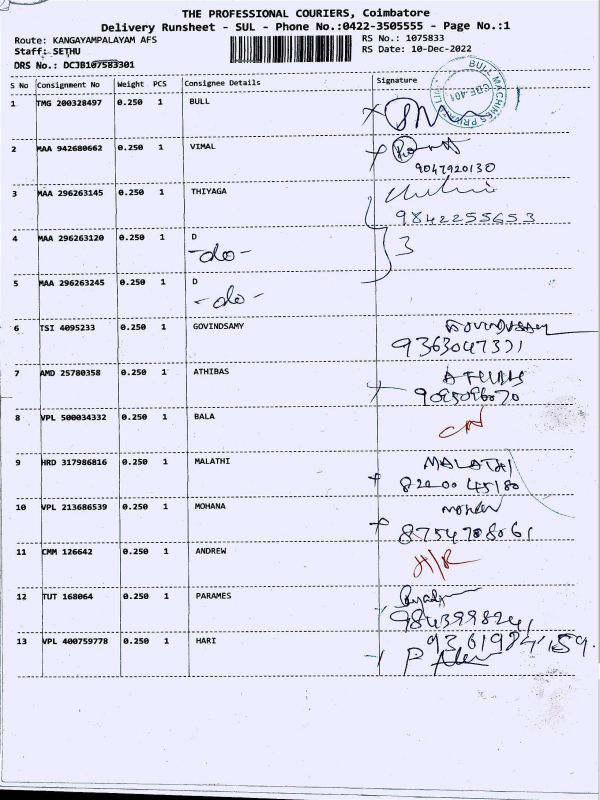 THE PROFESSIONAL COURIERS, Coimbatore
Delivery Runsheet - SUL - Phone No.:0422-3505555 - Page No.:1
Route: KANGAYAMPALAYAM AFS RS No.: 1075833
Staff: SETHU RS Date: 10-Dec-2022
DRS No.: DCJB107583301
S No Consignment No Weight PCS Consignee Details Signature
BULL MACHINES PRIVATE LIMITED
CBE-401
1 TMG 200328497 0.250 1 BULL
2 MAA 942680662 0.250 1 VIMAL
9047920130
3 MAA 296263145 0.250 1 THIYAGA
9842255653
4 MAA 296263120 0.250 1 D
-do- 3
5 MAA 296263245 0.250 1 D
-do-
6 TSI 4095233 0.250 1 GOVINDSAMY GOVINDSAMY
9363047331
7 AMD 25780358 0.250 1 ATHIBAS
9095096070
8 VPL 500034332 0.250 1 BALA
9 HRD 317986816 0.250 1 MALATHI MALATHI
8220045180
10 VPL 213686539 0.250 1 MOHANA
8754708061
11 CMM 126642 0.250 1 ANDREW H/R
12 TUT 168064 0.250 1 PARAMES
9843998241
13 VPL 400759778 0.250 1 HARI 9361984159